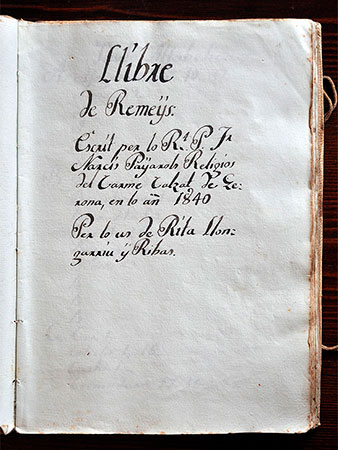 Llibre
de Remeÿs.
Escrit per lo R.t P. Fr
Narcis Paÿarols Religios
del Carme Calzat, de Ge-
rona, en lo añ 1840
Per lo us de Rita Llon-
garriu ÿ Ribas.